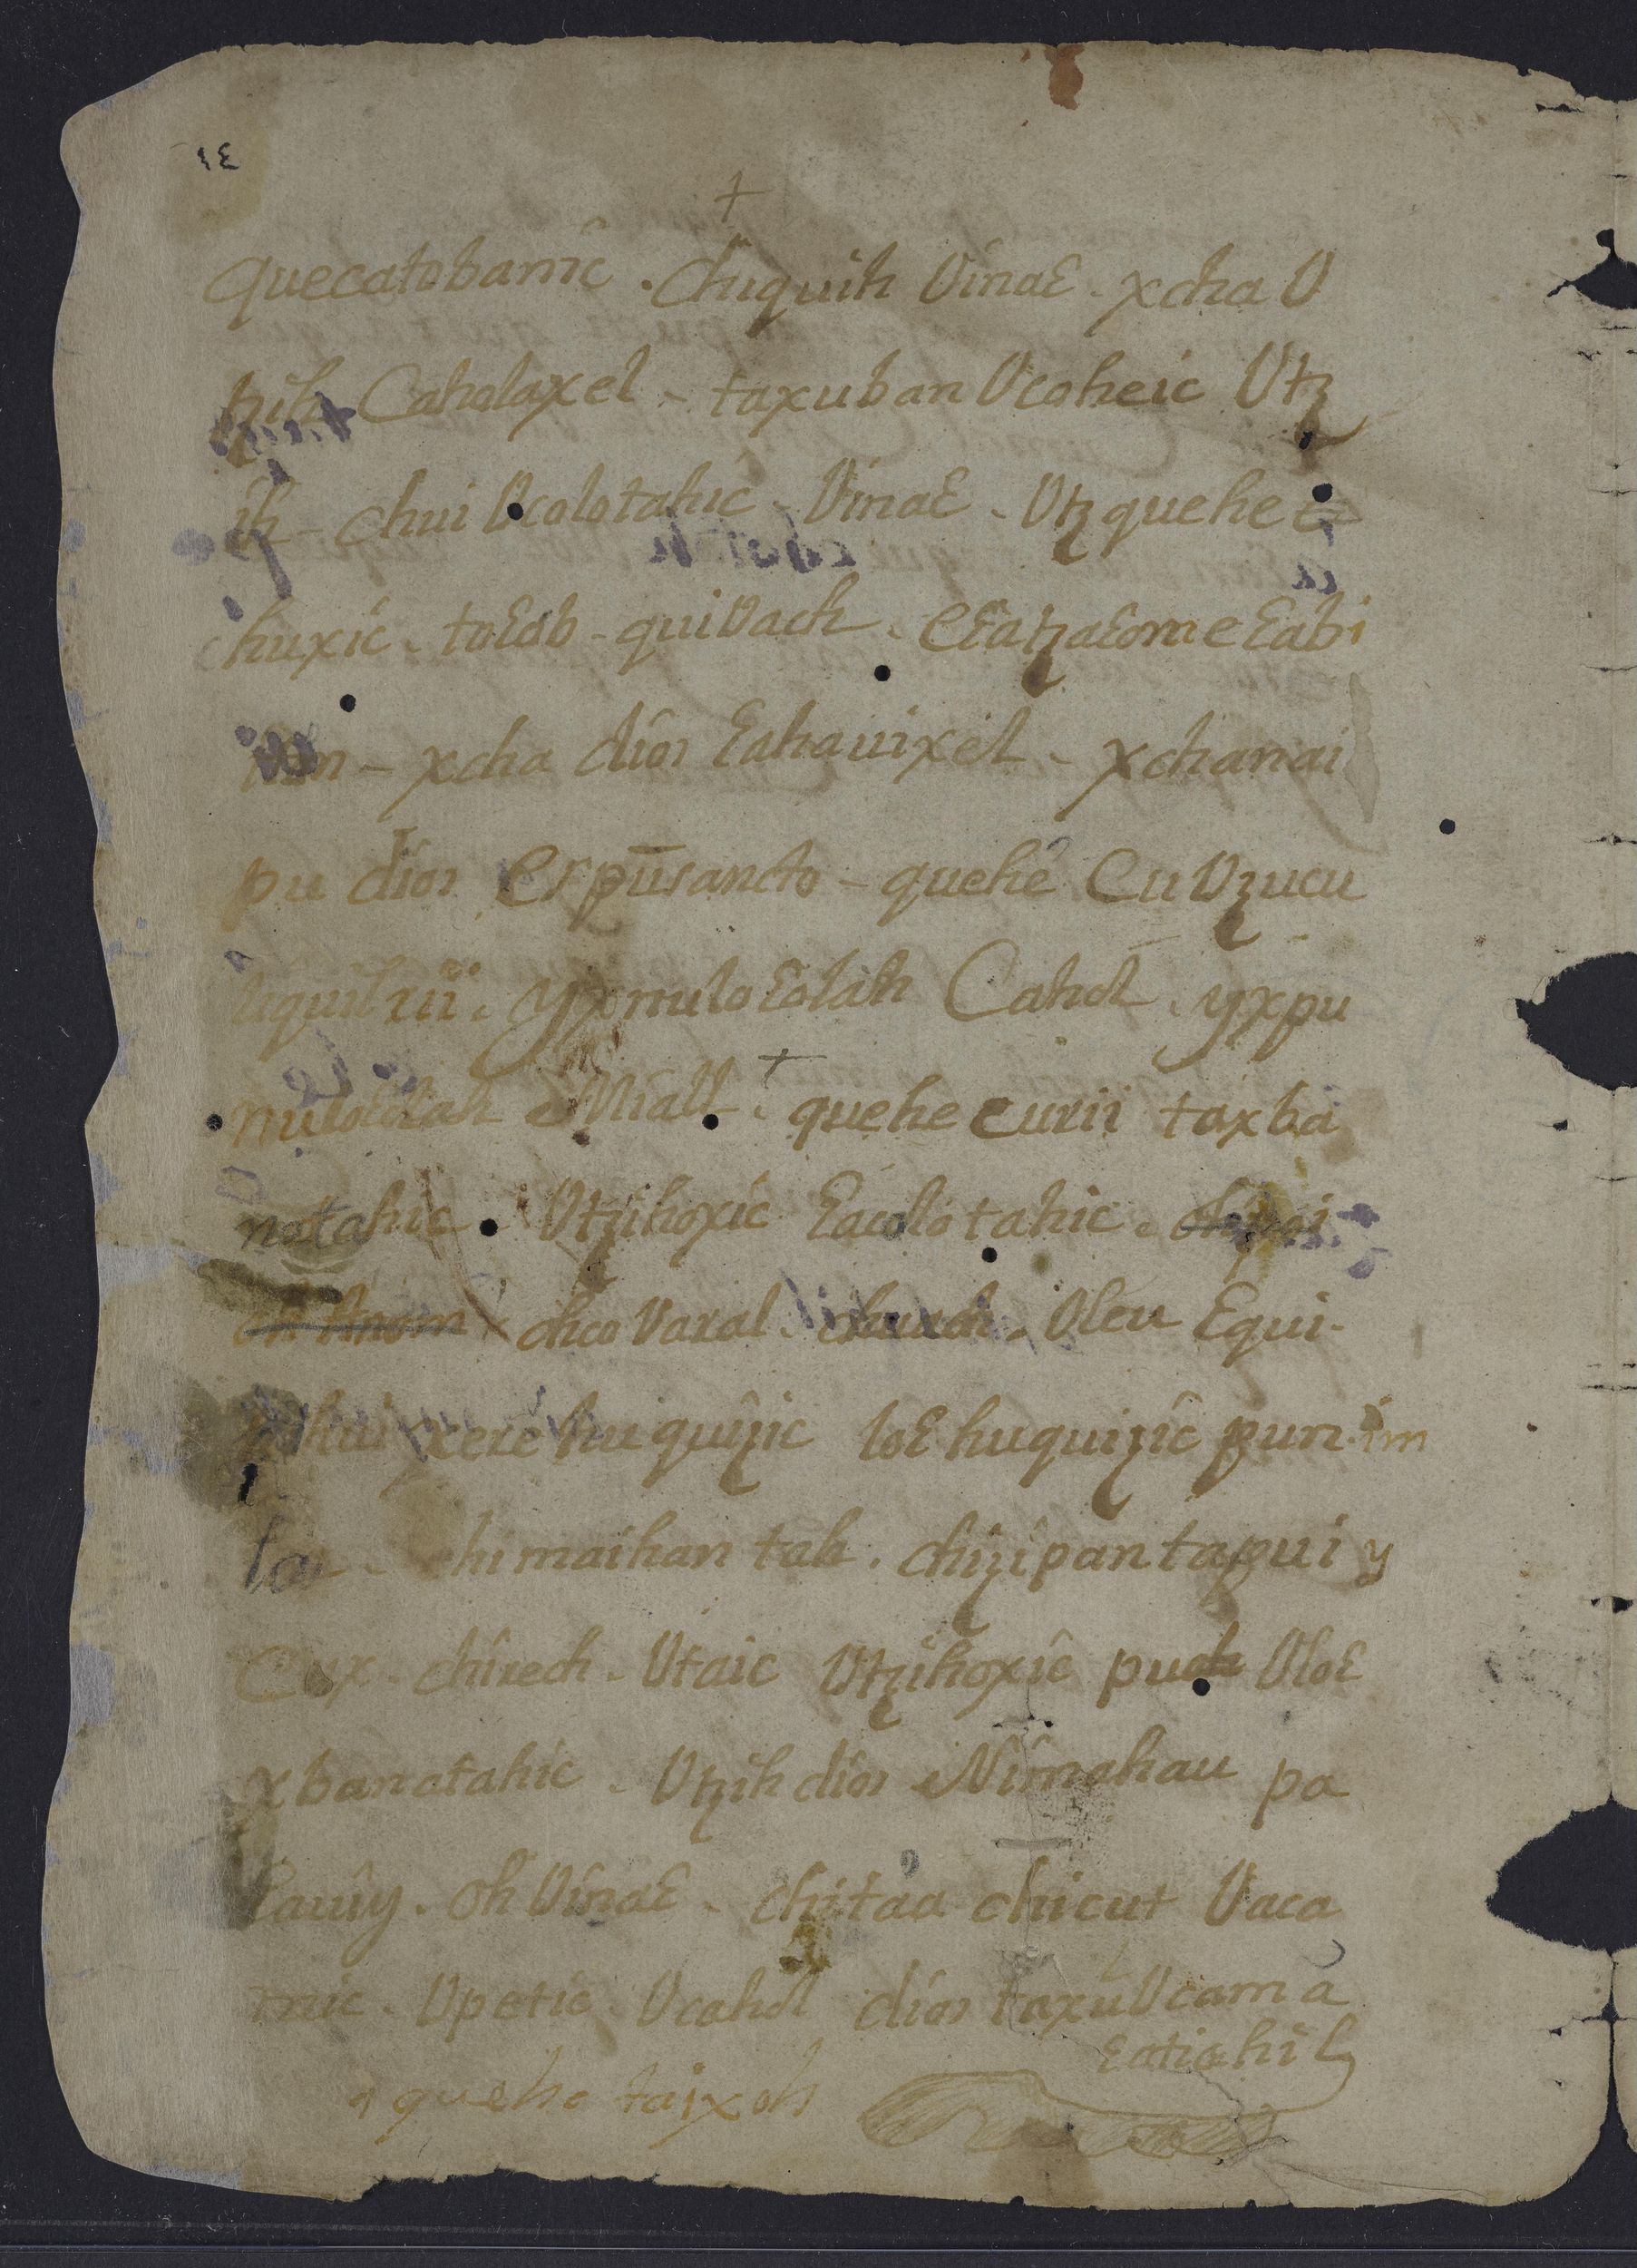 +
quecatobanic . Chiquih Vinaɛ . xcha V
tzih Caholaxel - taxuban Vcoheic Vtz
ih - chui Vcolotahic . Vinaɛ . Vtz quehe
chuxic . toɛob - quiVach .
xcha dios ɛahauixel . xchanai
pu dios espūsancto - quehe cu Vzucu
yxmulo ɛolah Cahol . yxpu
Miall . quehe curii taxba
notahic . Vtzihoxic ɛacolotahic .
chco Varal . chuach . Vleu ɛqui-
xere huquizic loɛ huquizic pun im
himaihan tah . chizipan tapui y
Cux . chirech . Vtaic Vtzihoxic puch Vloɛ
xbanatahic . Vtzih dios Nimahau pa
cauiy . oh Vinaɛ . chitaa chicut Vaca
mic . Vpetic Vcahol dios taxu Vcama
ɛatichil
quehe taixoh